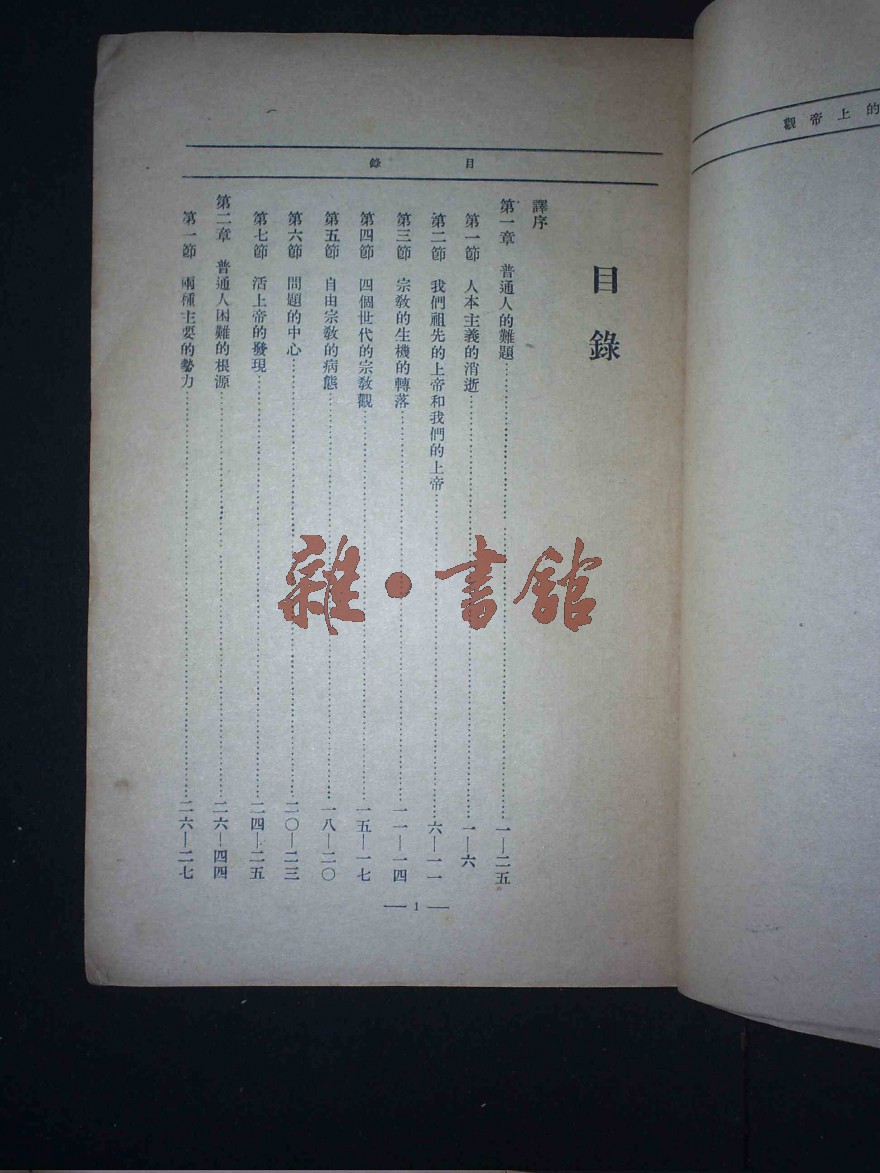 觀帝上的
錄 目
目錄
譯序
第一章 普通人的難題……一—二五
第一節 人本主義的消逝……一—六
第二節 我們祖先的上帝和我們的上帝……六—一一
第三節 宗教的生機的轉落……一一—一四
第四節 四個世代的宗教觀……一五—一七
第五節 自由宗教的病態……一八—二〇
第六節 問題的中心……二〇—二三
第七節 活上帝的發現……二四—二五
第二章 普通人困難的根源……二六—四四
第一節 兩種主要的勢力……二六—二七
— 1 —
雜·書館